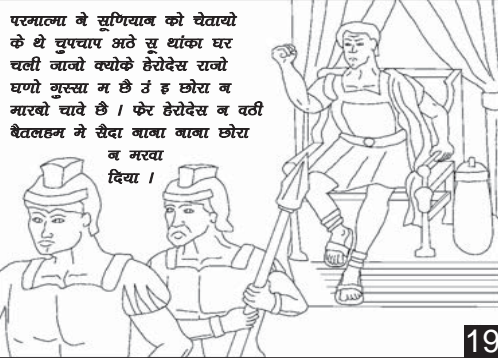 परमात्मा ने सूणियान को चेतायो
के थे चुपचाप अठे सू थांका घर
चली जाजो क्योके हेरोदेस राजो
घणो गुस्सा म छै उं इ छोरा न
मारबो चावे छै । फेर हेरोदेस न वठी
बैतलहम मे सैदा नाना नाना छोरा
न मरवा
दिया ।
19